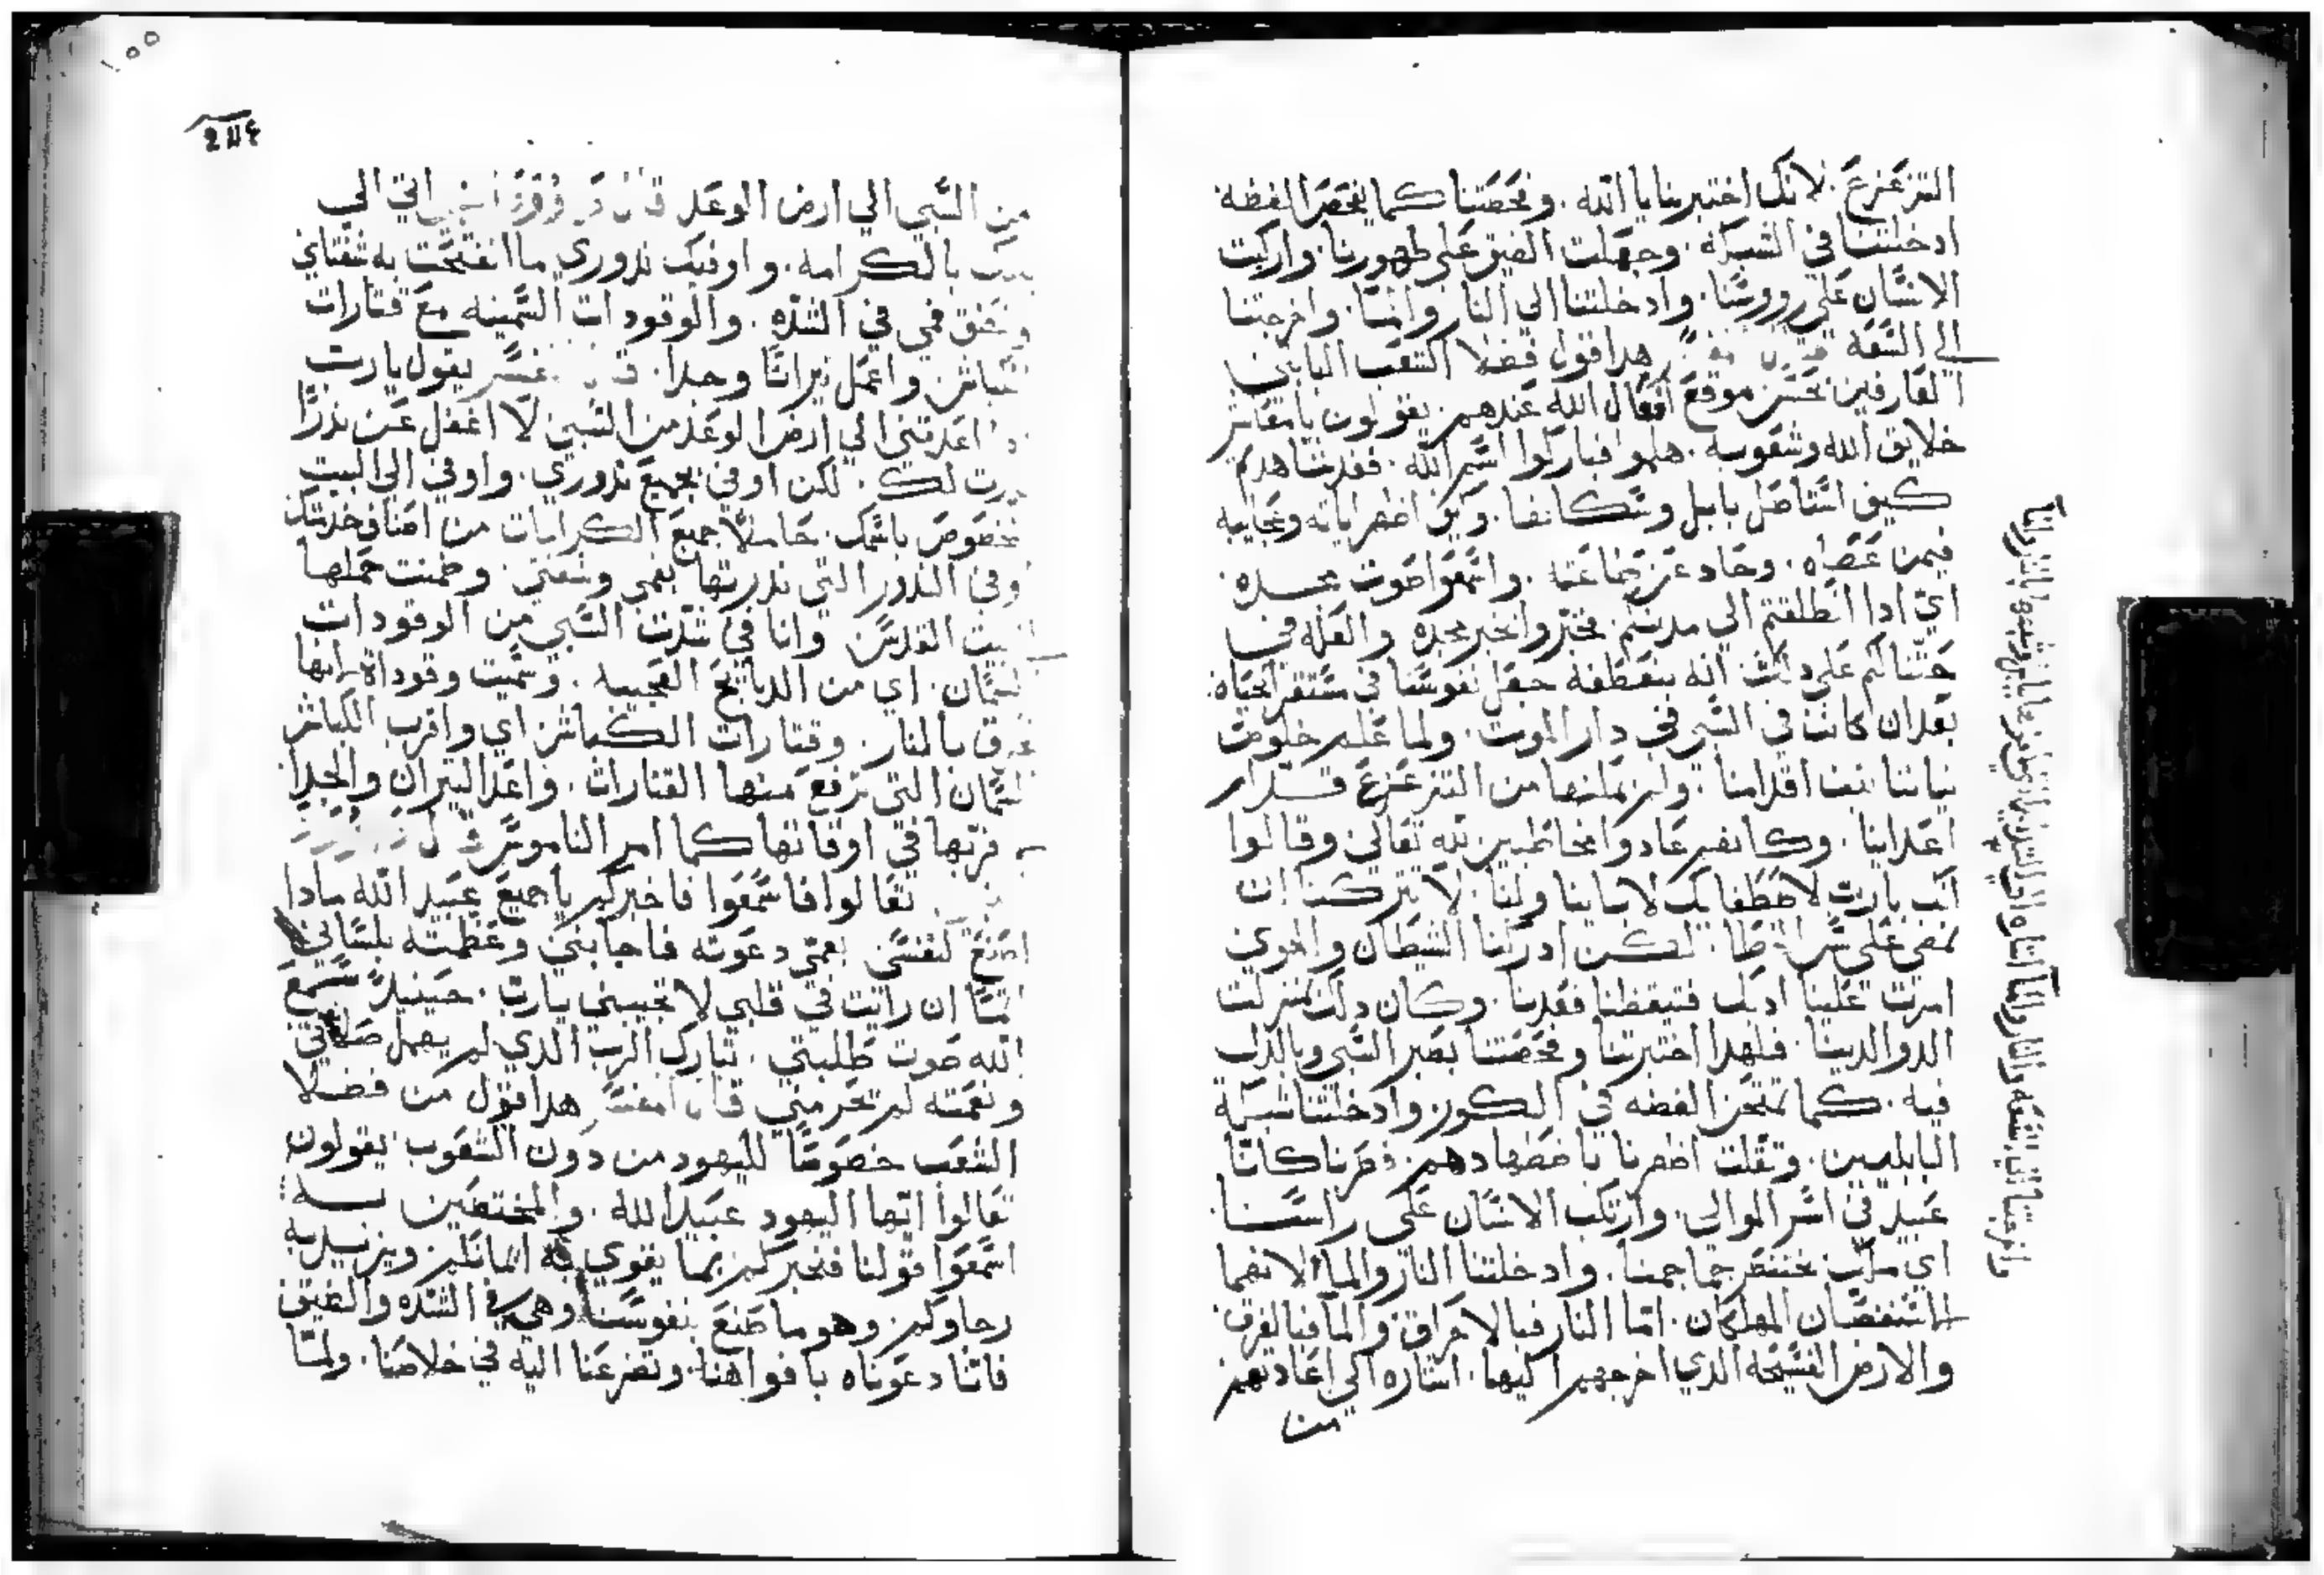 التزعزع. لانك اختبرتنا يا الله. ومحصتنا كما تمحص الفضه
ادخلتنا في الشبكه. وجعلت الضيق على ظهورنا. واركبت
الانسان علي رووسنا. وادخلتنا الي النار والما. واخرجتنا
الي السعه هدا قول فضلا الشعب البابلي
العارفين بحسن موقع افعال الله عندهم. يقولون يا معاشر
خلايق الله وشعوبه. هلموا فباركوا اسم الله. فقد شاهدتم
كيف استاصل بابل وسكانها. وبين اظهر اياته وعجايبه
فيمن عصاه. وحاد عن طاعته. واسمعوا صوت مجده
اي ادا انطلقتم الي مدنكم. فخبروا بخبر مجده والعله في
حثنا لكم على دلك. انه بتعطفه جعل نفوسنا في مستقر الحياه
بعد ان كانت في السبي في دار الموت. ولما علم خلوص
نياتنا ثبت اقدامنا. ولم يملنها من التزعزع قدام
اعداينا. وكانهم عادوا مخاطبين لله تعالي وقالوا
انت يارب لاصطفايك لاباينا ولنا. لا تتركنا ان
نمضي علي شر اخطا. لكن ادركنا الشيطان والهوي
امرت علينا ادبك فتيقظنا فعدنا. وكان دلك بمنزلت
الدوا لدينا. فلهدا اختبرتنا ومحصتنا بصبر السبي وبالدل
فيه. كما تمتحن الفضه في الكور. وادخلتنا شبكة
البابليين. وثقلت اظهرنا باضطهادهم. فصرنا كاننا
عبيد في اسر الموالي. واركب الانسان على راسنا
اي ملك يختتم جماجمنا. وادخلتنا النار والما. لانهما
اسطقسان المهلكان. اما النار فبالاحراق والما فبالغرق
والارض الفسيحه الدي اخرجهم اليها. اشاره الي اعادتهم
من
واخرجتنا الي السعه
من السبي الي ارض الوعد قال داوود النبي اتي الي
بيتك بالكرامه. واوفيك ندوري ما انفتحت به شفتاي
ونطق فمي في الشده. والوقودات السمينه مع قتارات
كباش. واعمل ثيرانا وجدا. قال المفسر يقول يارب
ادا اعدتني الي ارض الوعد من السبي لا اغفل عن ندرا
ندرت لك. لكن اوفي بجميع ندوري. واوفي الي البيت
المخصوص باسمك. حاملا جميع الكرامات من اصناف خدمتك
اوفي الندور التي ندرتها بفمي وشفتي. وضمنت حملها
الي بيت القدس. وانا في شدت السبي من الوقودات
السمان. اي من الدبايح العجيبه. وسميت وقوداة لانها
تحرق بالنار. وقتارات الكباش اي واقرب الكباش
السمان التي ترفع منها القتارات. واعد التيران والجدا
اقربها في اوقاتها كما امر الناموس قال
تعالوا فاسمعوا فاخبركم يا جميع عبيد الله مادا
اصنع لنفسي بفمي دعوته فاجابني وعظمته بلساني
انما ان رايت في قلبي لا تجيبني يارب. حينيد سمع
الله صوت طلبتي. تبارك الرب الدي لم يهمل صلاتي
ونعمته لم تحرمني قال المفسر هدا قول من فضلا
الشعب خصوصا لليهود من دون الشعوب يقولون
تعالوا ايها اليهود عبيد الله. والمختصين به
اسمعوا قولنا فنخبركم بما يقوي به ايمانكم. ويزيد به
رجاوكم. وهو ما صنع بنفوسنا وهي في الشده والضيق
فاننا دعوناه بافواهنا وتضرعنا اليه في خلاصنا. ولما